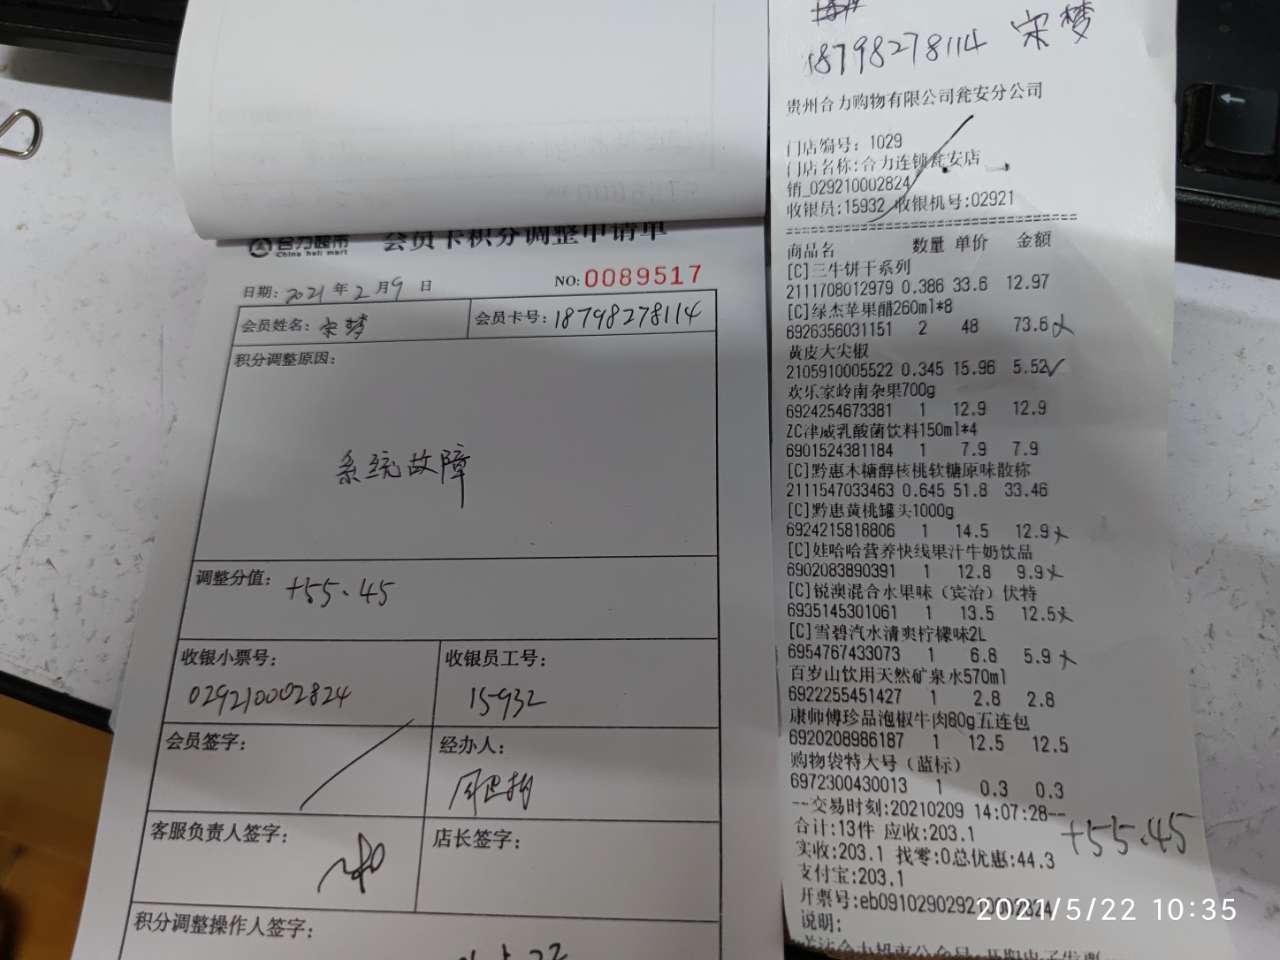 合力超市
China heli mart
会员卡积分调整申请单
日期: 2021 年 2 月 9 日
NO: 0089517
会员姓名: 宋梦
会员卡号: 18798278114
积分调整原因:
系统故障
调整分值: +55.45
收银小票号:
029210002824
收银员工号:
15932
会员签字:
经办人:
客服负责人签字:
店长签字:
积分调整操作人签字:
18798278114 宋梦
贵州合力购物有限公司瓮安分公司
门店编号: 1029
门店名称:合力连锁瓮安店
销_029210002824
收银员:15932 收银机号:02921
商品名 数量 单价 金额
[C]三牛饼干系列
2111708012979 0.386 33.6 12.97
[C]绿杰苹果醋260ml*8
6926356031151 2 48 73.6
黄皮大尖椒
2105910005522 0.345 15.96 5.52✓
欢乐家岭南杂果700g
6924254673381 1 12.9 12.9
ZC津威乳酸菌饮料150ml*4
6901524381184 1 7.9 7.9
[C]黔惠木糖醇核桃软糖原味散称
2111547033463 0.645 51.8 33.46
[C]黔惠黄桃罐头1000g
6924215818806 1 14.5 12.9
[C]娃哈哈营养快线果汁牛奶饮品
6902083890391 1 12.8 9.9
[C]锐澳混合水果味（宾治）伏特
6935145301061 1 13.5 12.5
[C]雪碧汽水清爽柠檬味2L
6954767433073 1 6.8 5.9
百岁山饮用天然矿泉水570ml
6922255451427 1 2.8 2.8
康师傅珍品泡椒牛肉80g五连包
6920208986187 1 12.5 12.5
购物袋特大号（蓝标）
6972300430013 1 0.3 0.3
--交易时刻:20210209 14:07:28--
+55.45
合计:13件 应收:203.1
实收:203.1 找零:0总优惠:44.3
支付宝:203.1
开票号:eb0910290292
说明:
2021/5/22 10:35